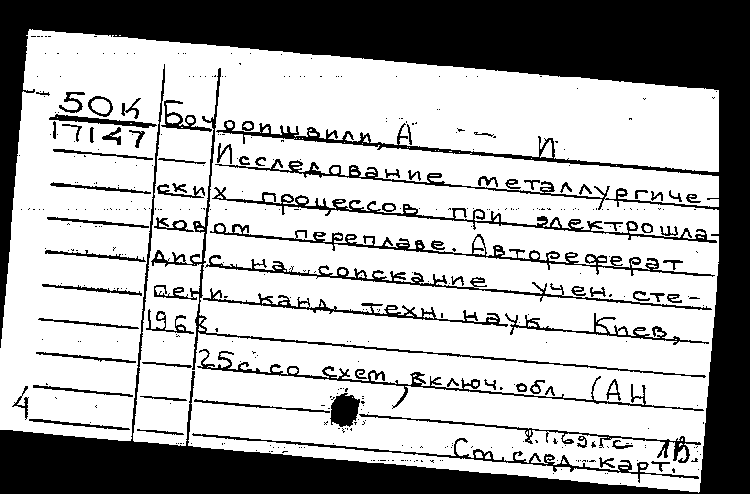 50К
17147
Бочоришвили, А -- И
Исследование металлургиче-
ских процессов при электрошла-
ковом переплаве. Автореферат
дисс. на соискание учен. сте-
пени канд. техн. наук. Киев,
1968.
25с. со схем., включ. обл. (АН
4
2.1.69.гс 1В.
См. след. карт.